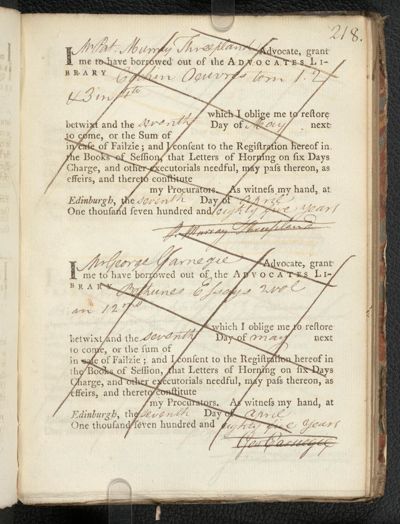 218.
I Mr Pat. Murray Threipland Advocate, grant
me to have borrowed out of the ADVOCATES LI-
BRARY Cochin Oeuvres tom 1. 2
& 3 in 4to
which I oblige me to restore
betwixt and the seventh Day of May next
to come, or the Sum of
in case of Failzie; and I consent to the Registration hereof in
the Books of Session, that Letters of Horning on six Days
Charge, and other executorials needful, may pass thereon, as
effeirs, and thereto constitute
my Procurators. As witness my hand, at
Edinburgh, the seventh Day of April
One thousand seven hundred and eighty five years
P. Murray Threipland
I Mr George Carnegie Advocate, grant
me to have borrowed out of the ADVOCATES LI-
BRARY Essays 2 vol
in 12mo
which I oblige me to restore
betwixt and the seventh Day of may next
to come, or the sum of
in case of Failzie; and I consent to the Registration hereof in
the Books of Session, that Letters of Horning on six Days
Charge, and other executorials needful, may pass thereon, as
effeirs, and thereto constitute
my Procurators. As witness my hand, at
Edinburgh, the seventh Day of April
One thousand seven hundred and eighty five years
Geo Carnegie